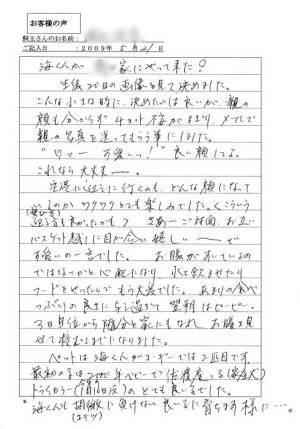 お客様の声
飼主さんのお名前：
ご記入日　：２００９年　５月２１日
海くんが　　家にやって来た！
生後20日の画像を見て決めました。
こんな小さな時に、決めたのは良いが、親の
顔も分からず　チョット不安がよぎり、メールで
親の写真を送ってもらう事にしました。
"ワァー　可愛いい！"　良い顔してる。
これなら　大丈夫ー。
空港に迎えに行くのも、どんな顔になって
いるのか　ワクワクとても楽しみでした。くこういう
も良かったかも＞　さあーご対面、お互い
バスケット越しに目が合い嬉しいー。で
可愛いの一言でした。　お腹がおいている
のではないかと心配になり　水を飲ませたり
フードをやったりでもう大変でした。あまりの食べ
っぷりの良さに与え過ぎて　翌朝はピーピー。
3日目位から随分と家にもなれ　お腹を見
せて　　までになりました。
ペットは海くんがコーギーでは2匹目です
最初の子は
トライカラーの　　とても良い子でした。
＊海くんも　　に負けない良い子に育ちます様に…。